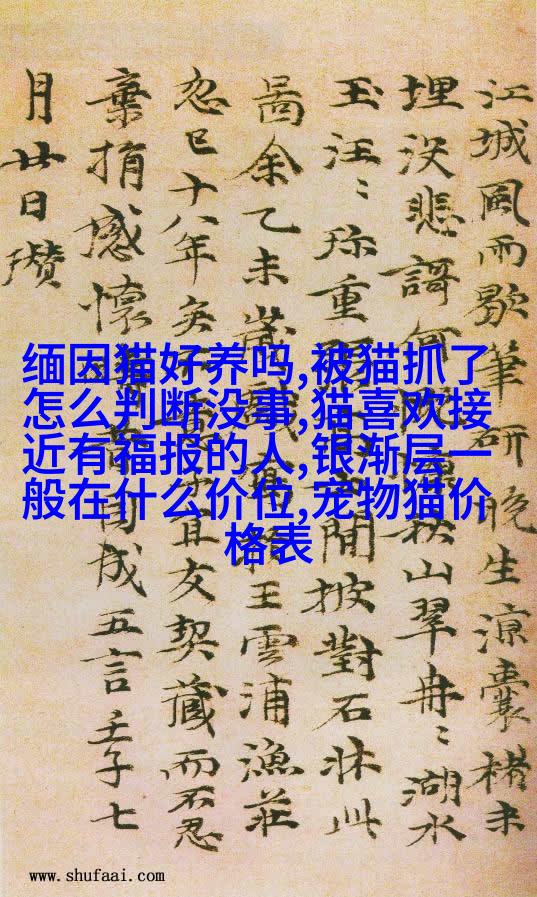 江城風雨歇筆研晚生涼囊楮未
埋没悲謌何秋山翠冉〻湖水
玉汪〻珎重間披對石牀此
啚余乙未歲戲王雲浦漁莊
忽已十八年矣不宜友契藏而不忍
棄捐感懷因成五言壬子七
月廿日瓚
缅因猫好养吗,被猫抓了
怎么判断没事,猫喜欢接
近有福报的人,银渐层一
般在什么价位,宠物猫价
格表
www.shufaai.com